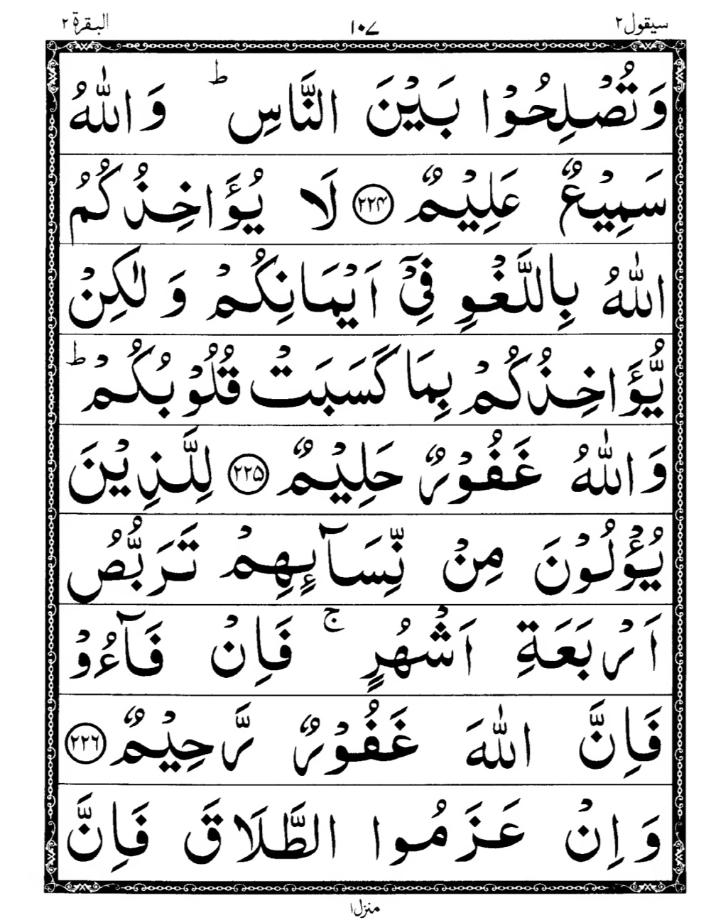 سيقول٢ ١٠٧ البقرة ٢
وَتُصْلِحُوْا بَيْنَ النَّاسِ ؕ وَاللّٰهُ
سَمِيْعٌ عَلِيْمٌ ﴿۲۲۴﴾ لَا يُؤَاخِذُكُمُ
اللّٰهُ بِاللَّغْوِ فِيْۤ اَيْمَانِكُمْ وَ لٰكِنْ
يُّؤَاخِذُكُمْ بِمَا كَسَبَتْ قُلُوْبُكُمْ ؕ
وَاللّٰهُ غَفُوْرٌ حَلِيْمٌ ﴿۲۲۵﴾ لِلَّذِيْنَ
يُؤْلُوْنَ مِنْ نِّسَآىِٕهِمْ تَرَبُّصُ
اَرْبَعَةِ اَشْهُرٍ ۚ فَاِنْ فَآءُوْ
فَاِنَّ اللّٰهَ غَفُوْرٌ رَّحِيْمٌ ﴿۲۲۶﴾
وَ اِنْ عَزَمُوا الطَّلَاقَ فَاِنَّ
منزل١